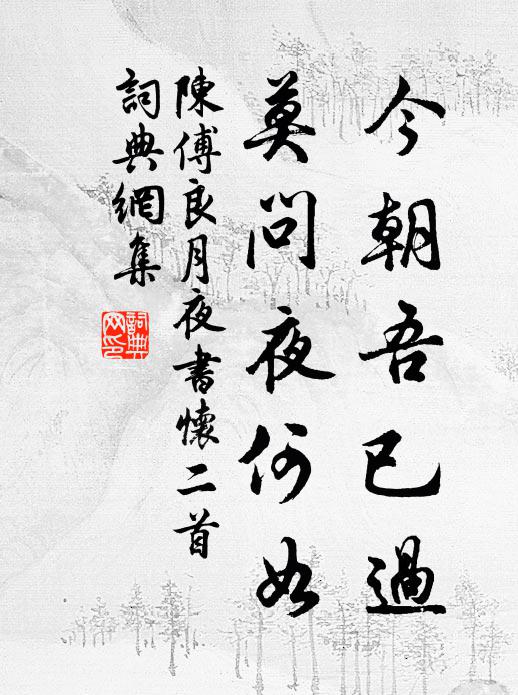 今朝吾已過
莫問夜何如
陳傅良月夜書懷二首
詞典網集
詞典網印